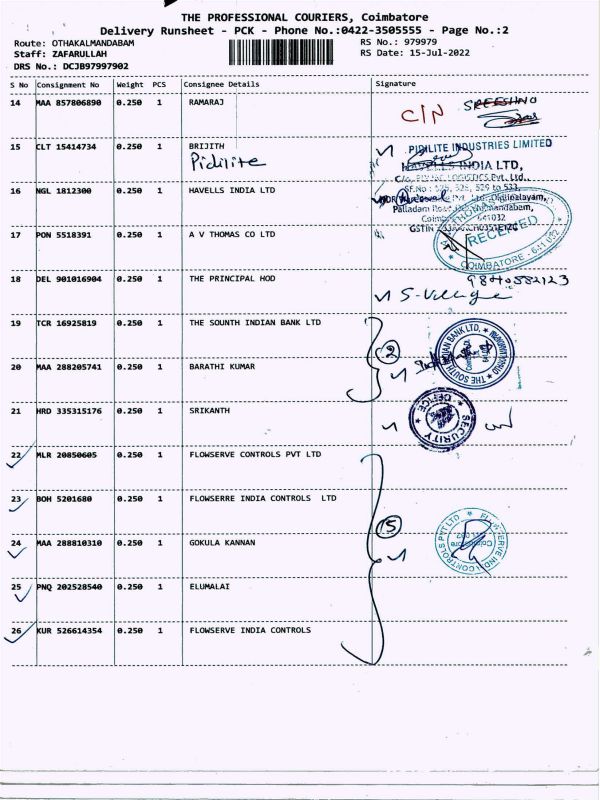 THE PROFESSIONAL COURIERS, Coimbatore
Delivery Runsheet - PCK - Phone No.:0422-3505555 - Page No.:2
Route: OTHAKALMANDABAM
RS No.: 979979
Staff: ZAFARULLAH
RS Date: 15-Jul-2022
DRS No.: DCJB97997902
S No Consignment No Weight PCS Consignee Details Signature
14 MAA 857806890 0.250 1 RAMARAJ C/N
15 CLT 15414734 0.250 1 BRIJITH PIDILITE INDUSTRIES LIMITED
Pidilite
HAVELLS INDIA LTD,
16 NGL 1812300 0.250 1 HAVELLS INDIA LTD
Palladam Road
641032
17 PON 5518391 0.250 1 A V THOMAS CO LTD RECEIVED
COIMBATORE - 641 032
18 DEL 901016904 0.250 1 THE PRINCIPAL HOD 9840582123
19 TCR 16925819 0.250 1 THE SOUNTH INDIAN BANK LTD
2 THE SOUTH INDIAN BANK LTD.
20 MAA 288205741 0.250 1 BARATHI KUMAR
21 HRD 335315176 0.250 1 SRIKANTH SECURITY OFFICE
22 MLR 20850605 0.250 1 FLOWSERVE CONTROLS PVT LTD
23 BOH 5201680 0.250 1 FLOWSERRE INDIA CONTROLS LTD
5 FLOWSERVE INDIA CONTROLS PVT LTD
24 MAA 288810310 0.250 1 GOKULA KANNAN
25 PNQ 202528540 0.250 1 ELUMALAI
26 KUR 526614354 0.250 1 FLOWSERVE INDIA CONTROLS